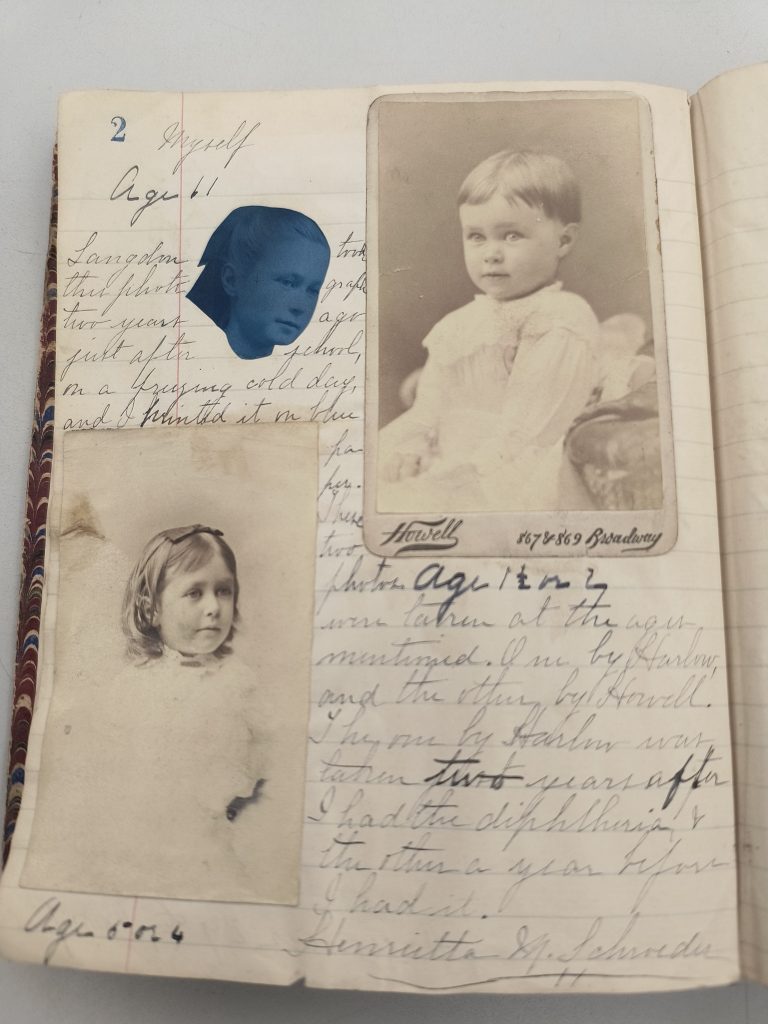 2
Myself
Age 11
Langdon took
this photo graph
two years ago
just after school,
on a freezing cold day,
and I printed it on blue
pa
per.
These
two
Howell 867 & 869 Broadway
photos Age 1½ or 2
were taken at the ages
mentioned. One by Harlow,
and the other by Howell.
The one by Harlow was
taken two years after
I had the diphtheria, &
the other a year before
I had it.
Age 5 or 6
Henrietta M. Schroeder